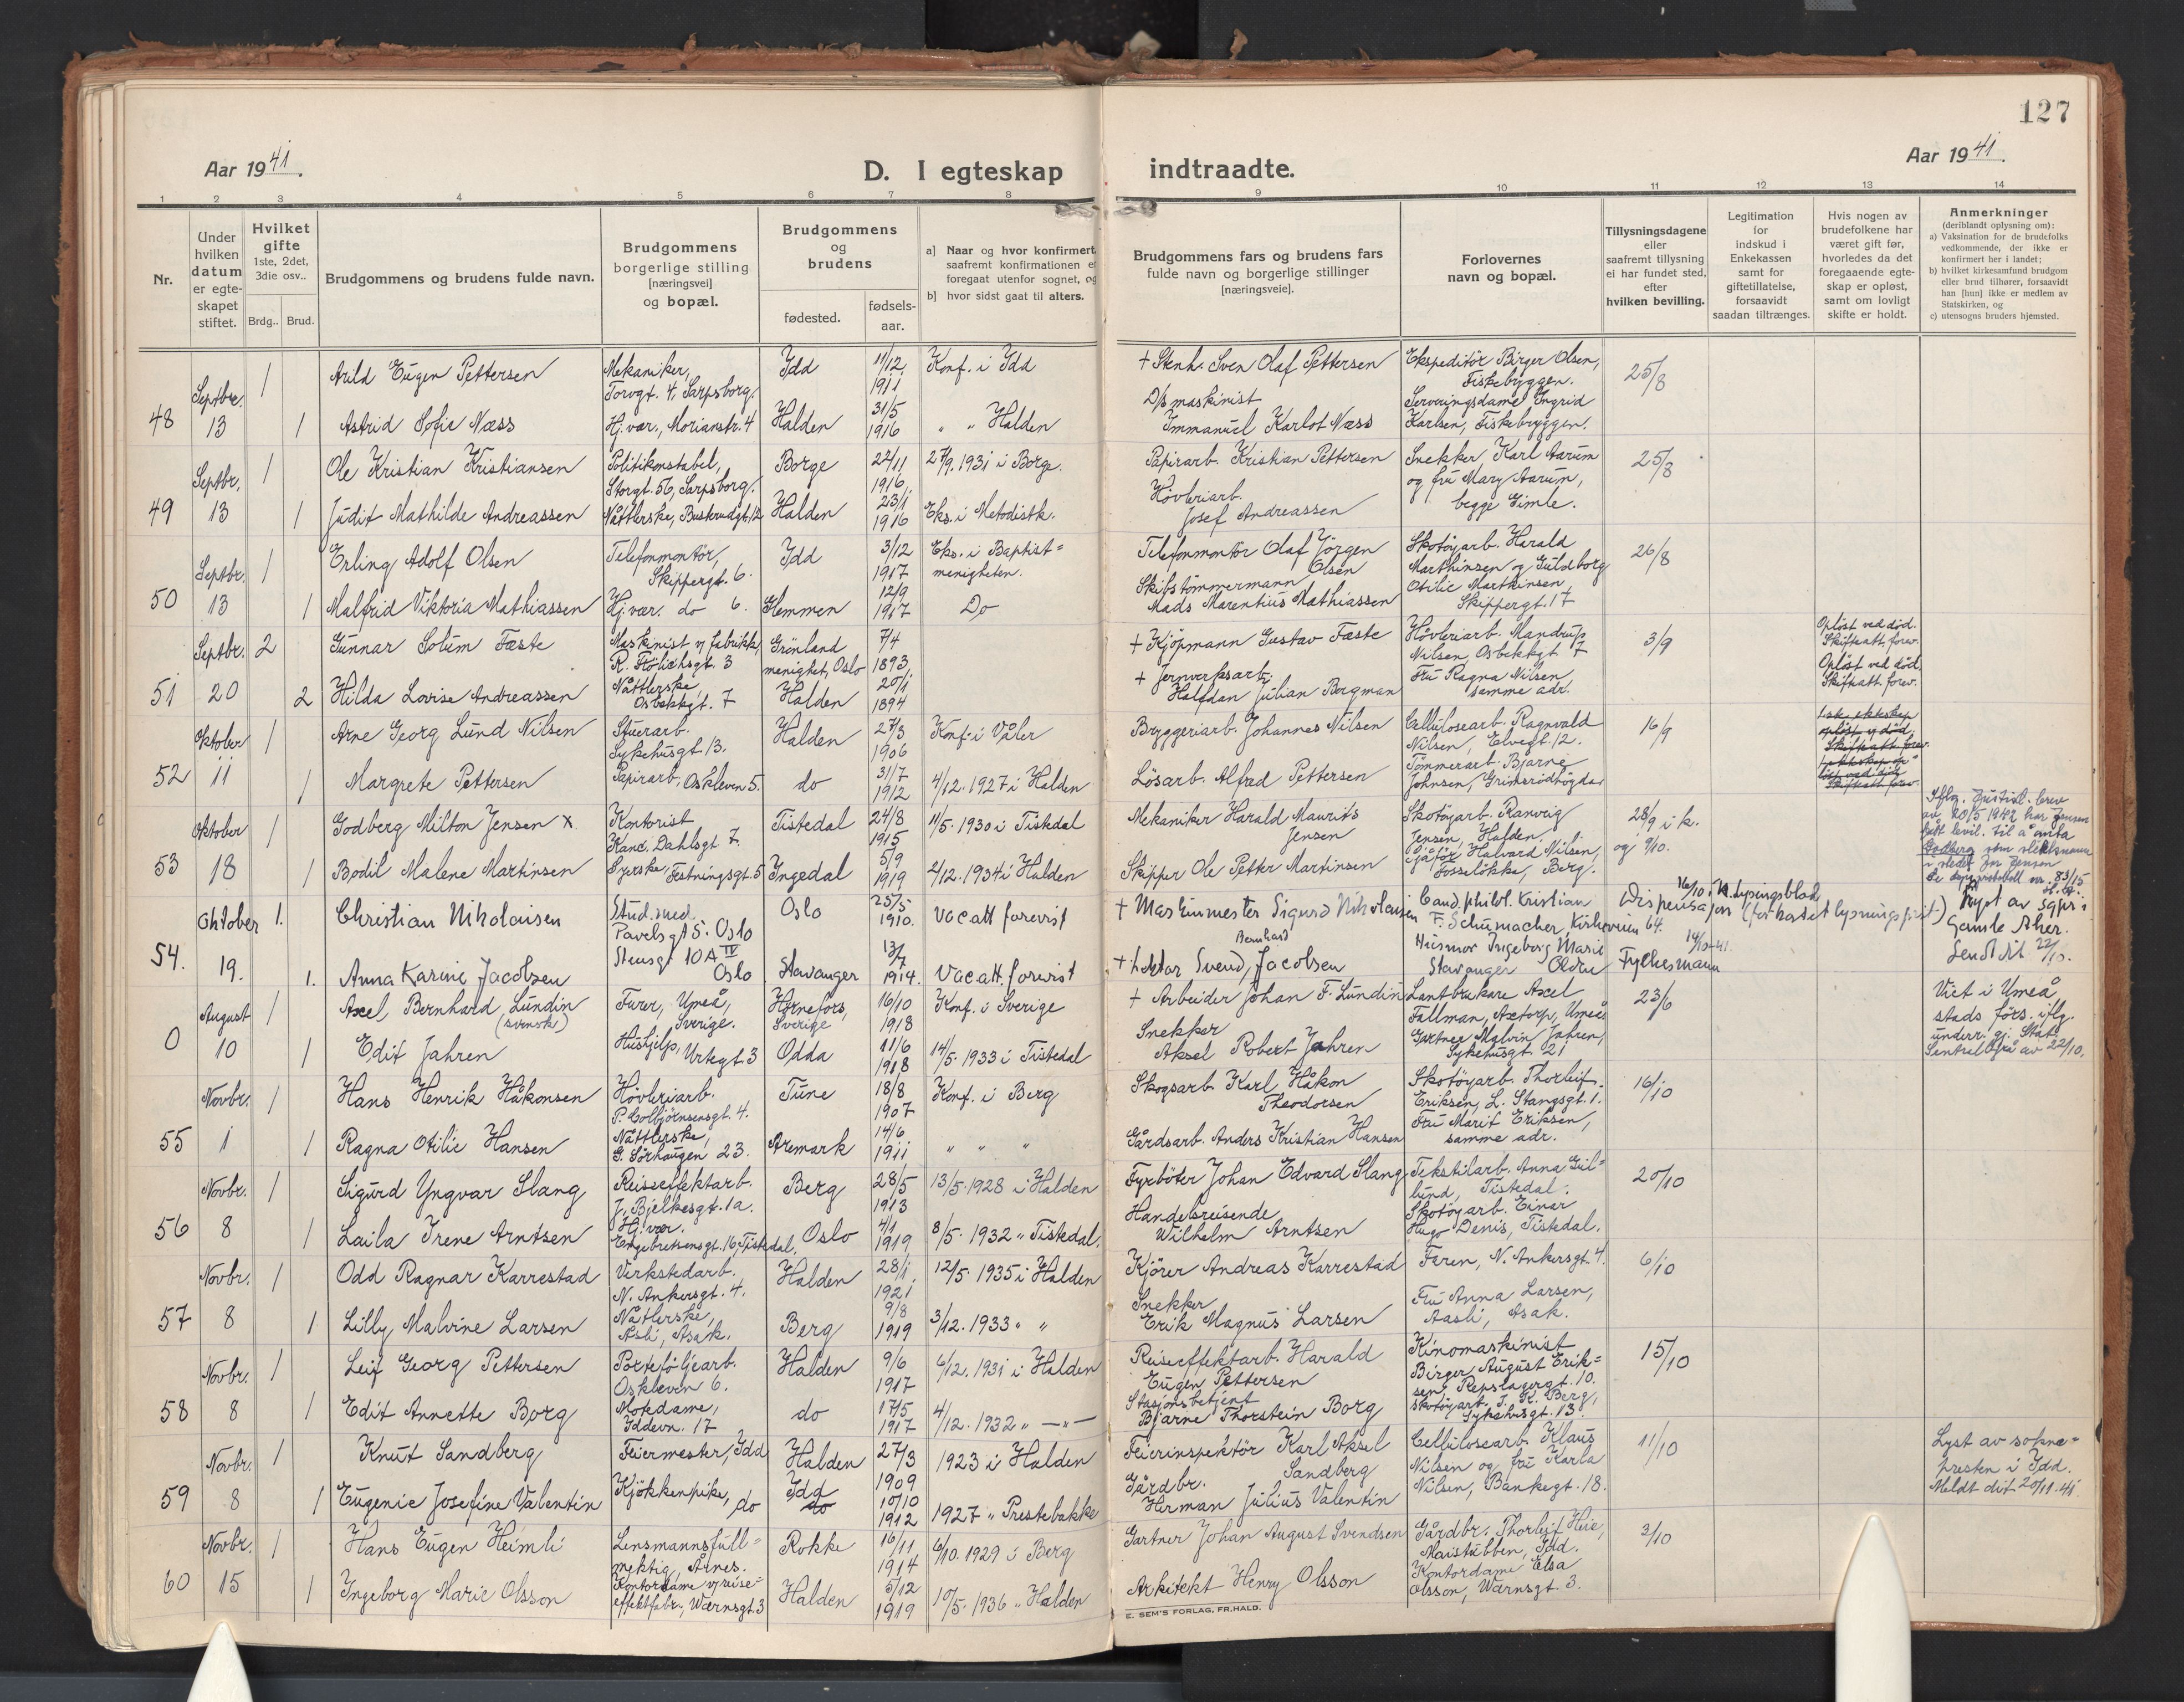 127
Aar 1941.
D. I egteskap indtraadte.
Aar 1941.
1 2 3 4 5 6 7 8 9 10 11 12 13 14
Nr.
Under hvilken datum er egteskapet stiftet.
Hvilket gifte 1ste, 2det, 3die osv..
Brdg.. Brud.
Brudgommens og brudens fulde navn.
Brudgommens borgerlige stilling [næringsvei] og bopæl.
Brudgommens og brudens
fødested.
fødsels-aar.
a] Naar og hvor konfirmert, saafremt konfirmationen ei foregaat utenfor sognet, og
b] hvor sidst gaat til alters.
Brudgommens fars og brudens fars fulde navn og borgerlige stillinger [næringsveie].
Forlovernes navn og bopæl.
Tillysningsdagene eller saafremt tillysning ei har fundet sted, efter hvilken bevilling.
Legitimation for indskud i Enkekassen samt for giftetillatelse, forsaavidt saadan tiltrænges.
Hvis nogen av brudefolkene har været gift før, hvorledes da det foregaaende egteskap er opløst, samt om lovligt skifte er holdt.
Anmerkninger (deriblandt oplysning om):
a) Vaksination for de brudefolks vedkommende, der ikke er konfirmert her i landet;
b) hvilket kirkesamfund brudgom eller brud tilhører, forsaavidt han [hun] ikke er medlem av Statskirken, og
c) utensogns bruders hjemsted.
48 Septbr. 13
1 Arild Eugen Pettersen Mekaniker, Torvgt. 4, Sarpsborg. Idd 11/12 1911 Konf. i Idd
+ Stenh. Sven Olaf Pettersen Ekspeditör Birger Olsen, Fiskebryggen. 25/8
1 Astrid Sofie Næss Hj.vær., Morianstr. 4 Halden 31/5 1916 " " Halden
D/s maskinist Immanuel Karlot Næss Serveringsdame Ingrid Karlsen, Fiskebryggen.
49 Septbr. 13
1 Ole Kristian Kristiansen Politikonstabel, Storgt. 56, Sarpsborg. Borge 22/11 1916 27/9. 1931 i Borge.
Papirarb. Kristian Pettersen Snekker Karl Aarum og fru Mary Aarum, begge Gimle. 25/8
1 Judit Mathilde Andreassen Nåtlerske, Buskrudgt. 12 Halden 23/1 1916 Eks. i Metodistk.
Hövleriarb. Josef Andreassen
50 Septbr. 13
1 Erling Adolf Olsen Telefonmontör, Skippergt. 6. Idd 3/12 1917 Eks. i Baptist= menigheten.
Telefonmontör Olaf Jörgen Olsen Skotöyarb. Harald Marthinsen og Guldborg Otilie Marthinsen, Skippergt. 17 26/8
1 Malfrid Viktoria Mathiassen Hj.vær. do 6. Glemmen 12/9 1917 Do
Skibstömmermann Mads Marentius Mathiassen
51 Septbr. 20
2 Gunnar Solum Fæste Maskinist v/ fabrikk, R. Flölichsgt. 3 Grönland menighet, Oslo 7/4 1893
+ Kjöpmann Gustav Fæste Hövleriarb. Mandrup Nilsen, Osbekkgt 7 3/9 Oplöst ved död. Skifteatt. forev.
2 Hilda Lovise Andreassen Nåtlerske, Osbekkgt. 7 Halden 20/1 1894
+ Jernverksarb. Halfdan Julian Bergman Fru Ragna Nilsen, samme adr. Oplöst ved död. Skifteatt. forev.
52 Oktober 11
1 Arne Georg Lund Nilsen Stuerarb. Sykehusgt. 13. Halden 27/3 1906 Konf. i Våler
Bryggeriarb. Johannes Nilsen Cellulosearb. Ragnvald Nilsen, Elvegt. 12. 16/9
1 Margrete Pettersen Papirarb., Oskleven 5. do 31/7 1912 4/12. 1927 i Halden
Lösarb. Alfred Pettersen Tömmerarb. Bjarne Johnsen, Grimsrödhögda
53 Oktober 18
1 Godberg Milton Jensen x Kontorist Kanc. Dahlsgt 7. Tistedal 24/8 1915 11/5. 1930 i Tistedal
Mekaniker Harald Maurits Jensen Skotöyarb. Ranveig Jensen, Halden 28/9 i k. og 9/10.
1 Bodil Malene Martinsen Syerske, Festningsgt. 5 Ingedal 5/9 1919 2/12. 1934 i Halden
Skipper Ole Petter Martinsen Sjåför Halvard Nilsen, Fosselökka, Berg.
Iflg. Justisd. brev av 20/5 1942 har Jensen fått bevil. til å anta Godberg som slektsnavn i stedet for Jensen
54. Oktober 19.
1. Christian Nikolaisen Stud. med. Pavelsgt 5. Oslo Oslo 25/5 1910. Vac att forevist
+ Maskinmester Sigurd Nikolaisen Cand. philol. Kristian F. Schumacher, Kirkeveien 64. Dispensasjon (forkortet lysningsfrist) 16/10
1. Anna Karine Jacobsen Stensgt 10 A IV Oslo Stavanger 13/7 1914. Vac att. forevist
+ Lektor Svend Bernhard Jacobsen Husmor Ingeborg Marie Stavanger Fylkesmann 14/10-41.
Lyst av sgpr i Gamle Aker. Sendt dit 22/10.
0 August 10
1 Axel Bernhard Lundin (svensk) Furer, Umeå, Sverige. Hörnefors, Sverige 16/10 1918 Konf. i Sverige
+ Arbeider Johan F. Lundin Lantbrukare Axel Fallman, Axtorp, Umeå 23/6
1 Edit Jahren Hushjelp, Urtegt. 3 Odda 11/6 1918 14/5. 1933 i Tistedal
Snekker Aksel Robert Jahren Gartner Malvin Jahren, Sykehusgt. 21
Viet i Umeå stads förs. iflg. underr. gj. Stat. Sentralbyrå av 22/10.
55 Novbr. 1
1 Hans Henrik Håkonsen Hövleriarb. P. Colbjörnsensgt. 4. Tune 18/8 1907 Konf. i Berg
Skogsarb. Karl Håkon Theodorsen Skotöyarb. Thorleif Eriksen, L. Stangsgt. 1. 16/10
1 Ragna Otilie Hansen Nåtlerske, G. Sörhaugen 23. Aremark 14/6 1911 " " "
Gårdsarb. Anders Kristian Hansen Fru Marit Eriksen, samme adr.
56 Novbr. 8
1 Sigurd Yngvar Slang Reiseeffektarb. J. Bjelkesgt. 1a. Berg 28/5 1913 13/5. 1928 i Halden
Fyrböter Johan Edvard Slang Tekstilarb. Anna Gul= lund, Tistedal. 20/10
1 Laila Irene Arntsen Hj.vær. Engebretsensgt. 16, Tistedal. Oslo 4/1 1919 8/5. 1932 " Tistedal.
Handelsreisende Wilhelm Arntsen Skotöyarb. Einar Hugo Denis, Tistedal.
57 Novbr. 8
1 Odd Ragnar Karrestad Verkstedarb. N. Ankersgt. 4. Halden 28/1 1921 12/5. 1935 i Halden
Kjörer Andreas Karrestad Faren, N. Ankersgt. 4. 6/10
1 Lilly Malvine Larsen Nåtlerske, Asli, Asak. Berg 9/8 1919 3/12. 1933 " "
Snekker Erik Magnus Larsen Fru Anna Larsen, Aasli, Asak.
58 Novbr. 8
1 Leif Georg Pettersen Porteföljearb. Oskleven 6. Halden 9/6 1917 6/12. 1931 i Halden
Reiseeffektarb. Harald Eugen Pettersen Kinomaskinist Birger August Erik= sen, Repslagergt. 10. 15/10
1 Edit Annette Borg Motedame, Iddevn. 17 do 17/5 1917 4/12. 1932 " — " —
Stasjonsbetjent Bjarne Thorstein Borg Skotöyarb. J. K. Berg, Sykehusgt. 13.
59 Novbr. 8
1 Knut Sandberg Feiermester, Idd Halden 27/3 1909 1923 i Halden
Feierinspektör Karl Aksel Sandberg Cellulosearb. Klaus Nilsen og fru Karla Nilsen, Bankegt. 18. 11/10
1 Eugenie Josefine Valentin Kjökkenpike, do Idd do 10/10 1912 1927 " Prestebakke
Gårdbr. Herman Julius Valentin
Lyst av sokne= presten i Idd. Meldt dit 20/11-41.
60 Novbr. 15
1 Hans Eugen Heimli Lensmannsfull= mektig, Årnes. Rokke 16/11 1914 6/10. 1929 i Berg
Gartner Johan August Svendsen Gårdbr. Thorleif Hoie, Maistubben, Idd. 3/10
1 Ingeborg Marie Olsson Kontordame v/ reise= effektfabr., Wærnsgt. 3 Halden 5/12 1919 10/5. 1936 " Halden
Arkitekt Henry Olsson Kontordame Elsa Olsson, Wærnsgt. 3.
E. SEM'S FORLAG, FR.HALD.